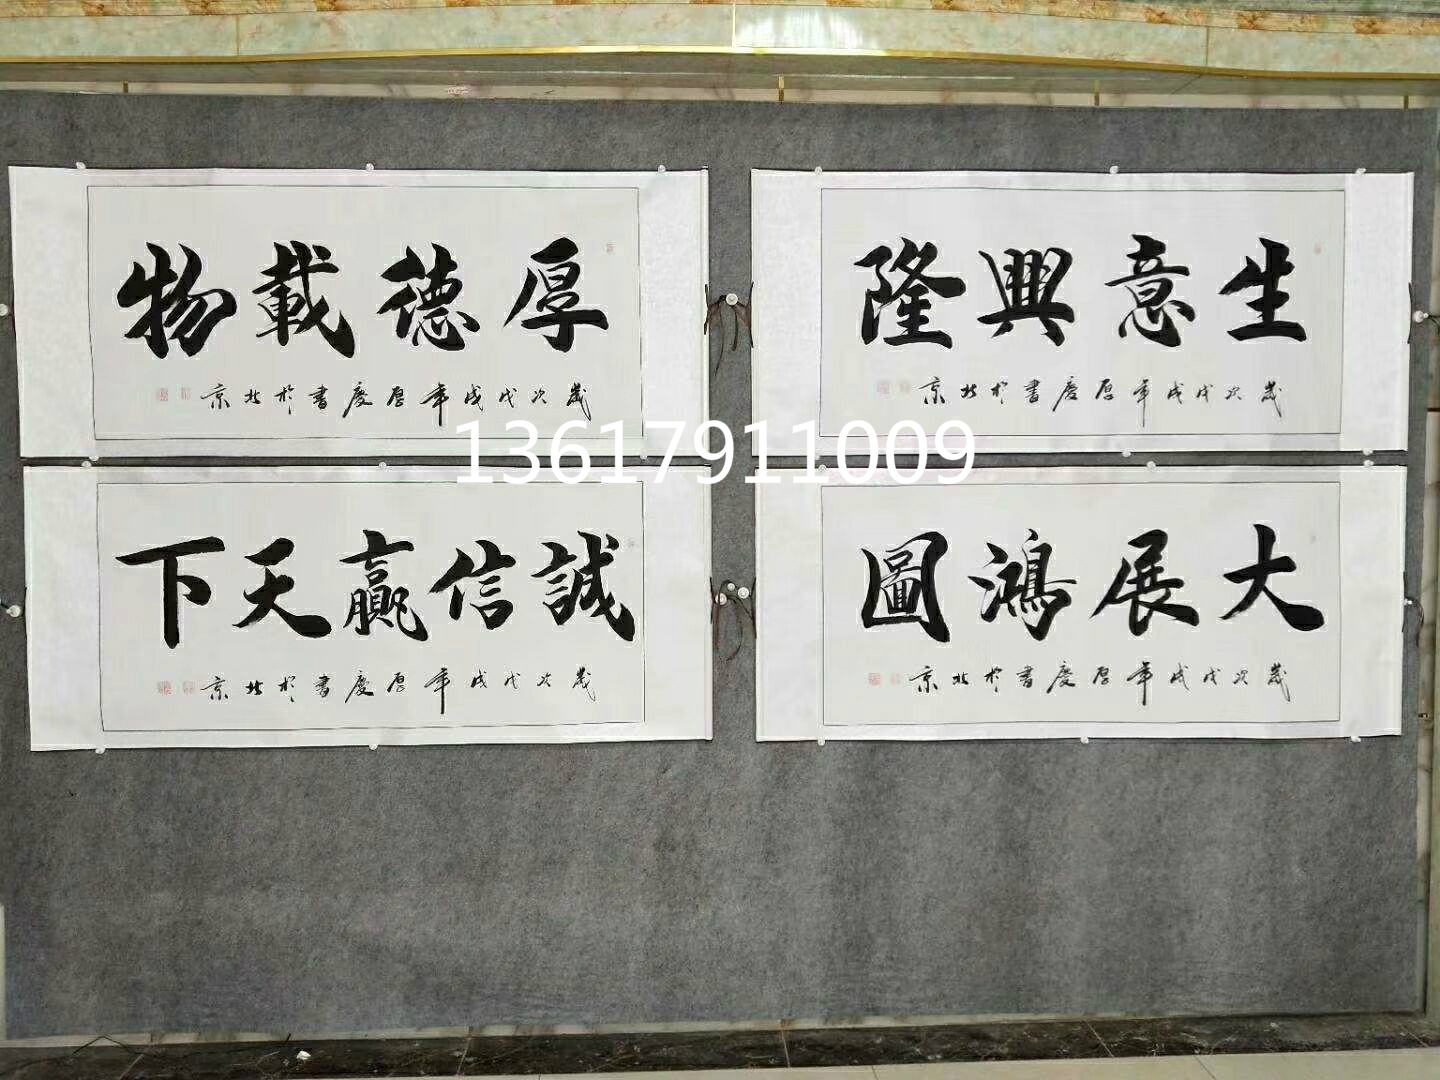 厚德載物
歲次戊戌年厚慶書於北京
生意興隆
歲次戊戌年厚慶書於北京
13617911009
誠信贏天下
歲次戊戌年厚慶書於北京
大展鴻圖
歲次戊戌年厚慶書於北京